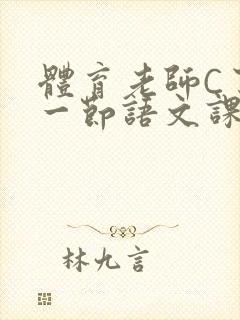 體育老師C
一節語文課
林九言